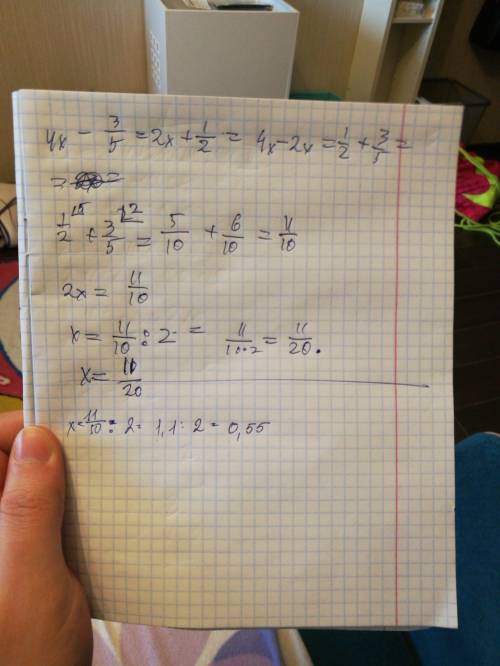 4x - 3/5 = 2x + 1/2 = 4x - 2x = 1/2 + 3/5 =
= =
1/2 \5 + 3/5 \2 = 5/10 + 6/10 = 11/10
2x = 11/10
x = 11/10 : 2 = 11/10·2 = 11/20.
x = 11/20
x = 11/10 : 2 = 1,1 : 2 = 0,55